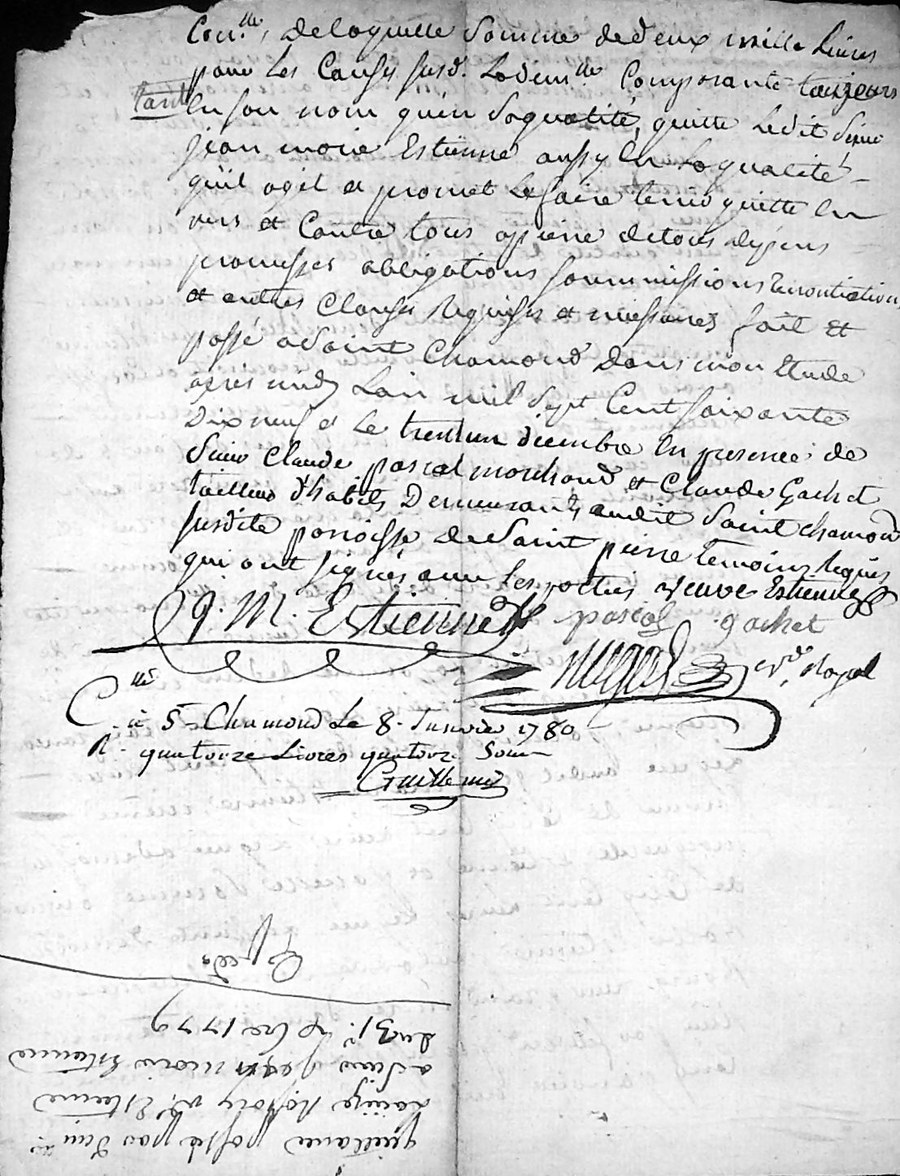 Con.lle, delaquelle Somme dedeux mille livres
pour les Causes susd. ladem.lle Composante toujours
tant
En son nom qu'en Saqualité, quitte ledit Sieur
jean marie Estienne aussy en la qualité
qu'il agit et promet le faire tenir quitte En
vers et Contre tous apeine detous depens
promesses obligations soummissions Renontiation
et autres Clauses Requises et nessaires fait et
passé a Saint Chamond dans mon Etude
apres midy Lan mil Sept Cent soixante
Dix neuf et Le trent un decembre En presence de
Sieur Claude pascal marchand et Claude Gachet
tailleur d'habits Demeurants audit Saint chamond
susdite paroisse de Saint pierre temoins Requis
qui ont signés avec les parties veuve Estienne
J. M. Estienne pascal gachet
Royal
C.lé à St Chamond Le 8. Janvier 1780
R. quatorze Livres quatorze Sous
quittance passé par Dem.lle
veuve Estienne
a Sieur jean marie Estienne
du 31.e xbre 1779
Exped.on